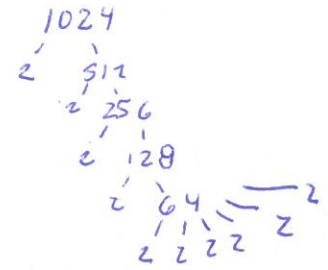 1024
2 512
2 256
2 128
2 64 2
2 2 2 2 2